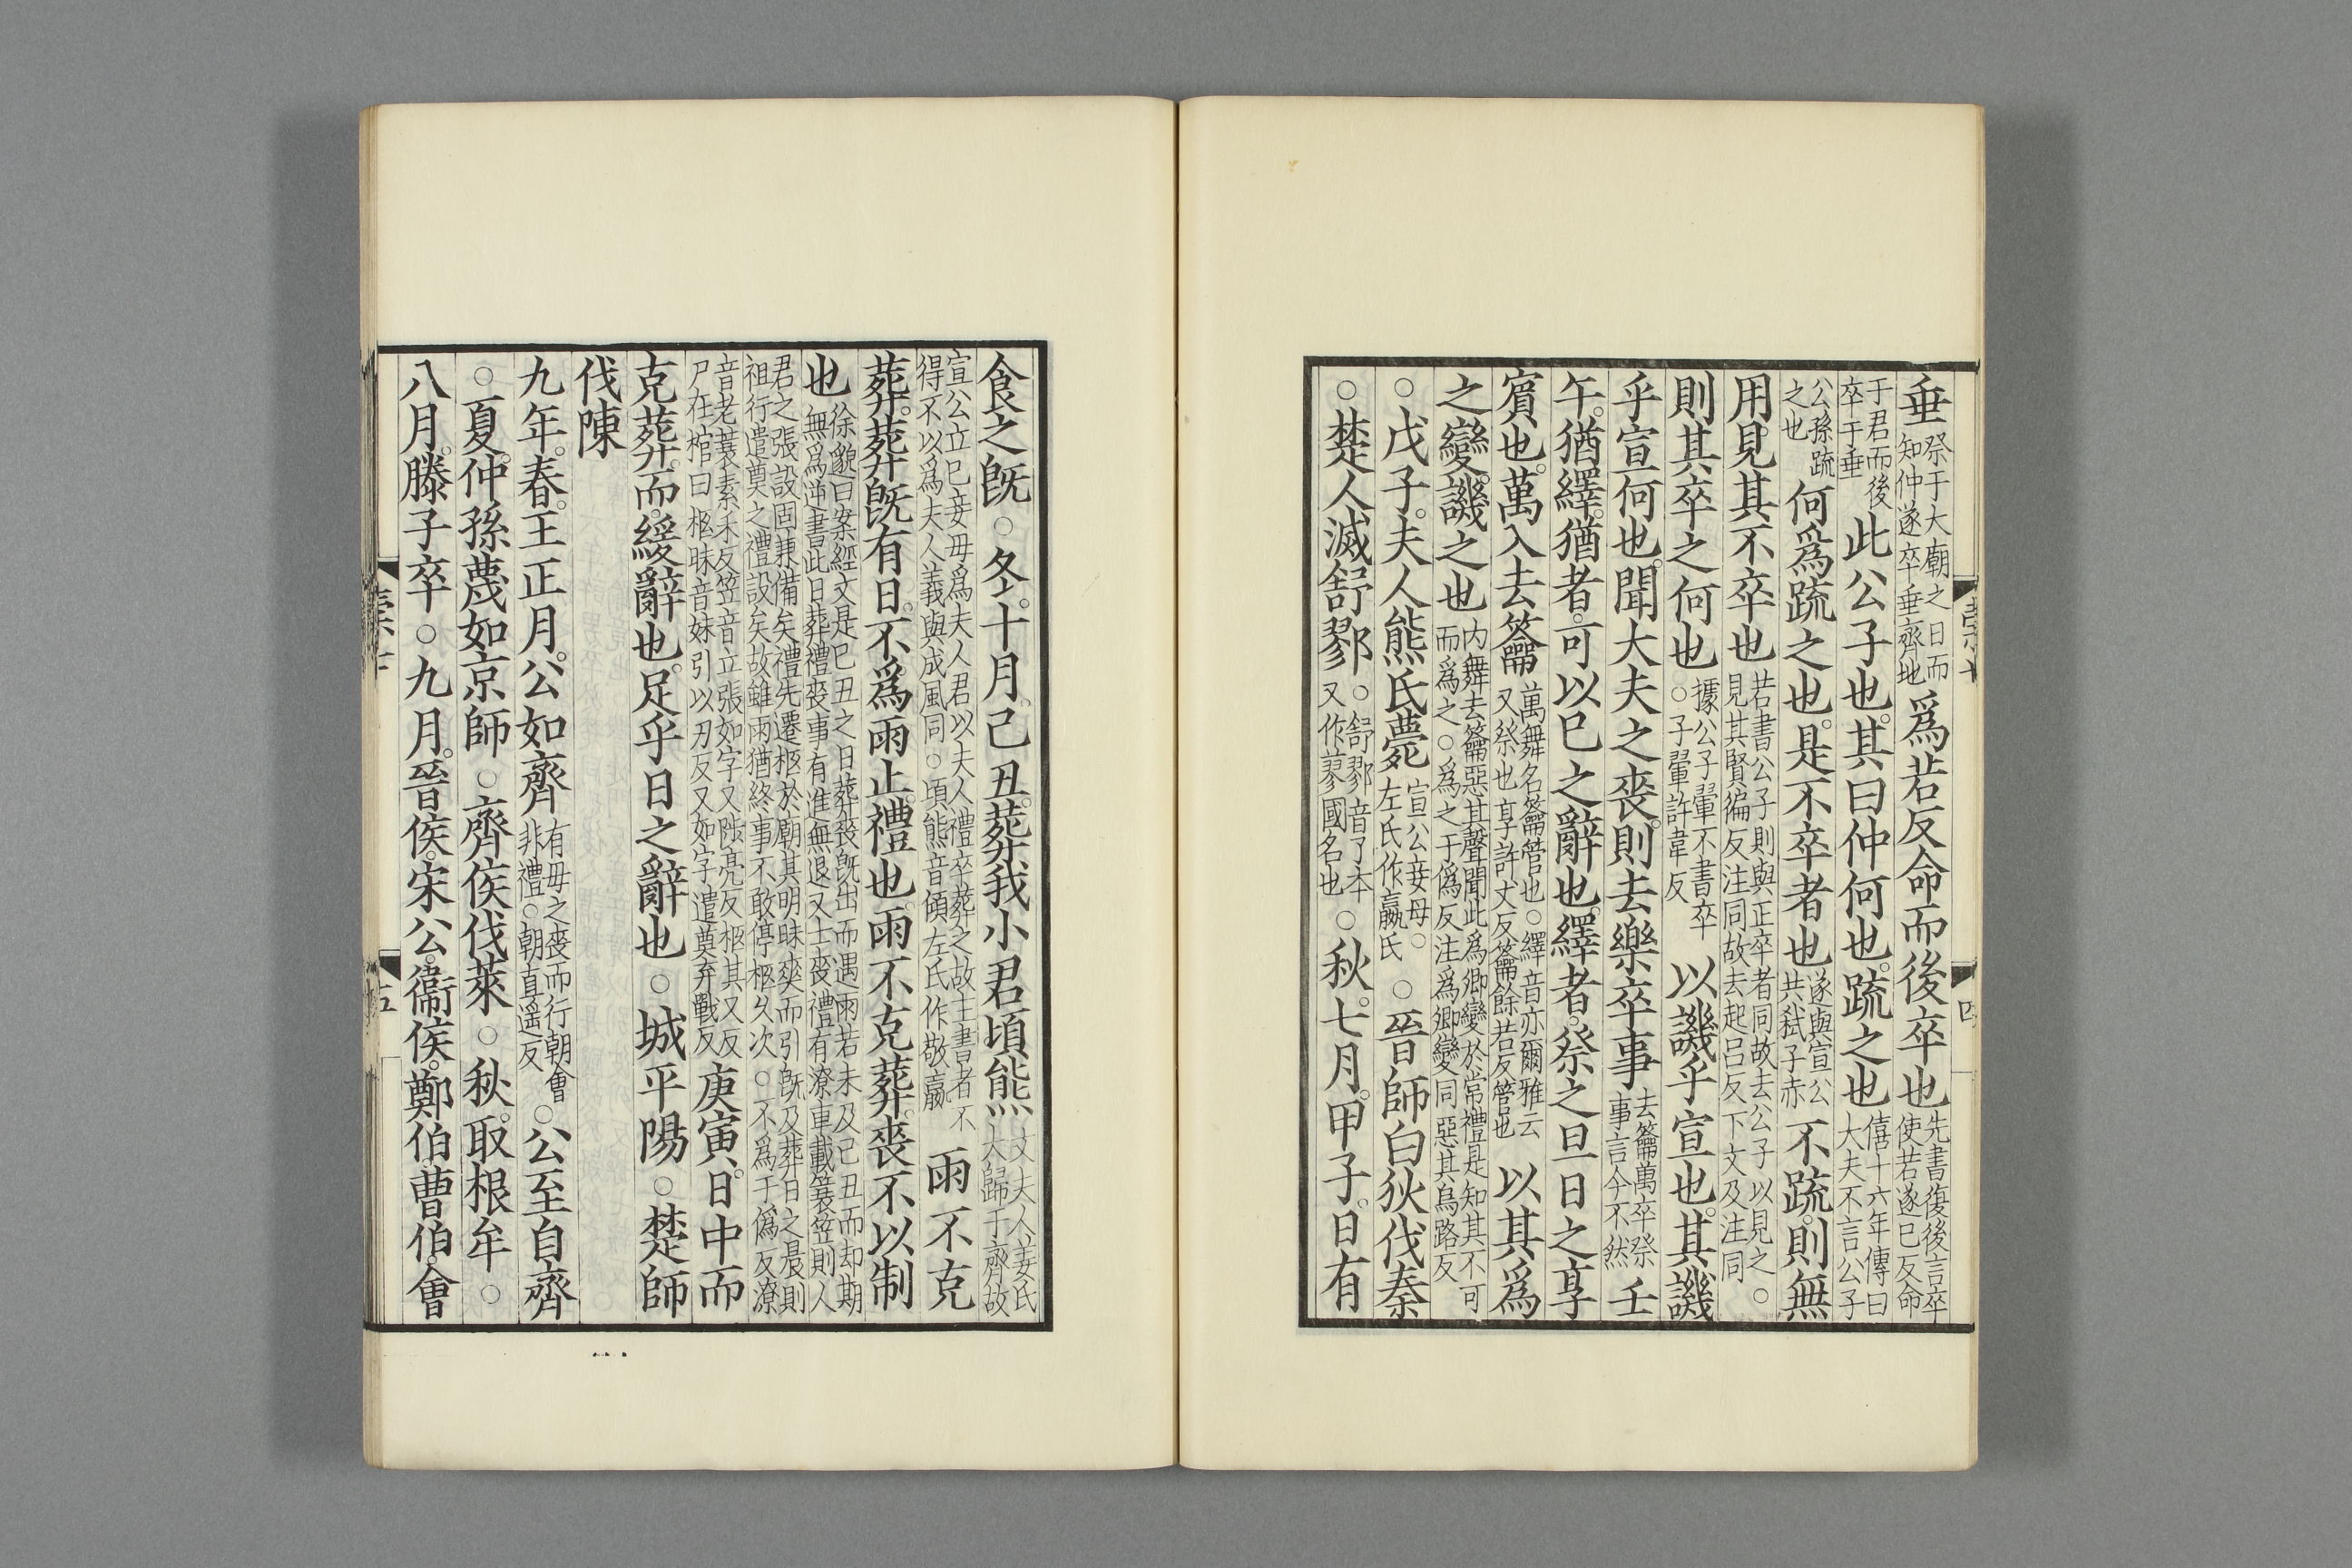 垂祭于大廟之日而知仲遂卒垂齊地爲若反命而後卒也先書復後言卒使若遂已反命
于君而後卒于垂此公子也其曰仲何也疏之也僖十六年傳曰大夫不言公子
公孫疏之也何爲疏之也是不卒者也遂與宣公共弒子赤不疏則無
用見其不卒也若書公子則與正卒者同故去公子以見之○見其賢徧反注同故去起呂反下文及注同
則其卒之何也據公子翬不書卒○子翬許韋反以譏乎宣也其譏
乎宣何也聞大夫之喪則去樂卒事去籥萬卒祭事言今不然壬
午猶繹猶者可以已之辭也繹者祭之旦日之享
賓也萬入去籥萬舞名籥管也○繹音亦爾雅云又祭也享許丈反籥餘若反管也以其爲
之變譏之也内舞去籥惡其聲聞此爲卿變於常禮是知其不可而爲之○爲之于僞反注爲卿變同惡其烏路反
○戊子夫人熊氏薨宣公妾母○左氏作嬴氏○晉師白狄伐秦
○楚人滅舒鄝○舒鄝音了本又作蓼國名也○秋七月甲子日有
食之旣○冬十月己丑葬我小君頃熊文夫人姜氏大歸于齊故
宣公立己妾母爲夫人君以夫人禮卒葬之故主書者不得不以爲夫人義與成風同○頃熊音傾左氏作敬嬴雨不克
葬葬旣有日不爲雨止禮也雨不克葬喪不以制
也徐邈曰案經文是己丑之日葬喪旣出而遇雨若未及己丑而却期無爲逆書此日葬禮喪事有進無退又士喪禮有潦車載簑笠則人
君之張設固兼備矣禮先遷柩於廟其明昧爽而引旣及葬日之晨則祖行遣奠之禮設矣故雖雨猶終事不敢停柩久次○不爲于僞反潦
音老蓑素禾反笠音立張如字又陟亮反柩其又反尸在棺曰柩昧音妹引以刃反又如字遣奠弃戰反庚寅日中而
克葬而緩辭也足乎日之辭也○城平陽○楚師
伐陳
九年春王正月公如齊有母之喪而行朝會非禮○朝直遥反○公至自齊
○夏仲孫蔑如京師○齊侯伐萊○秋取根牟○
八月滕子卒○九月晉侯宋公衞侯鄭伯曹伯會